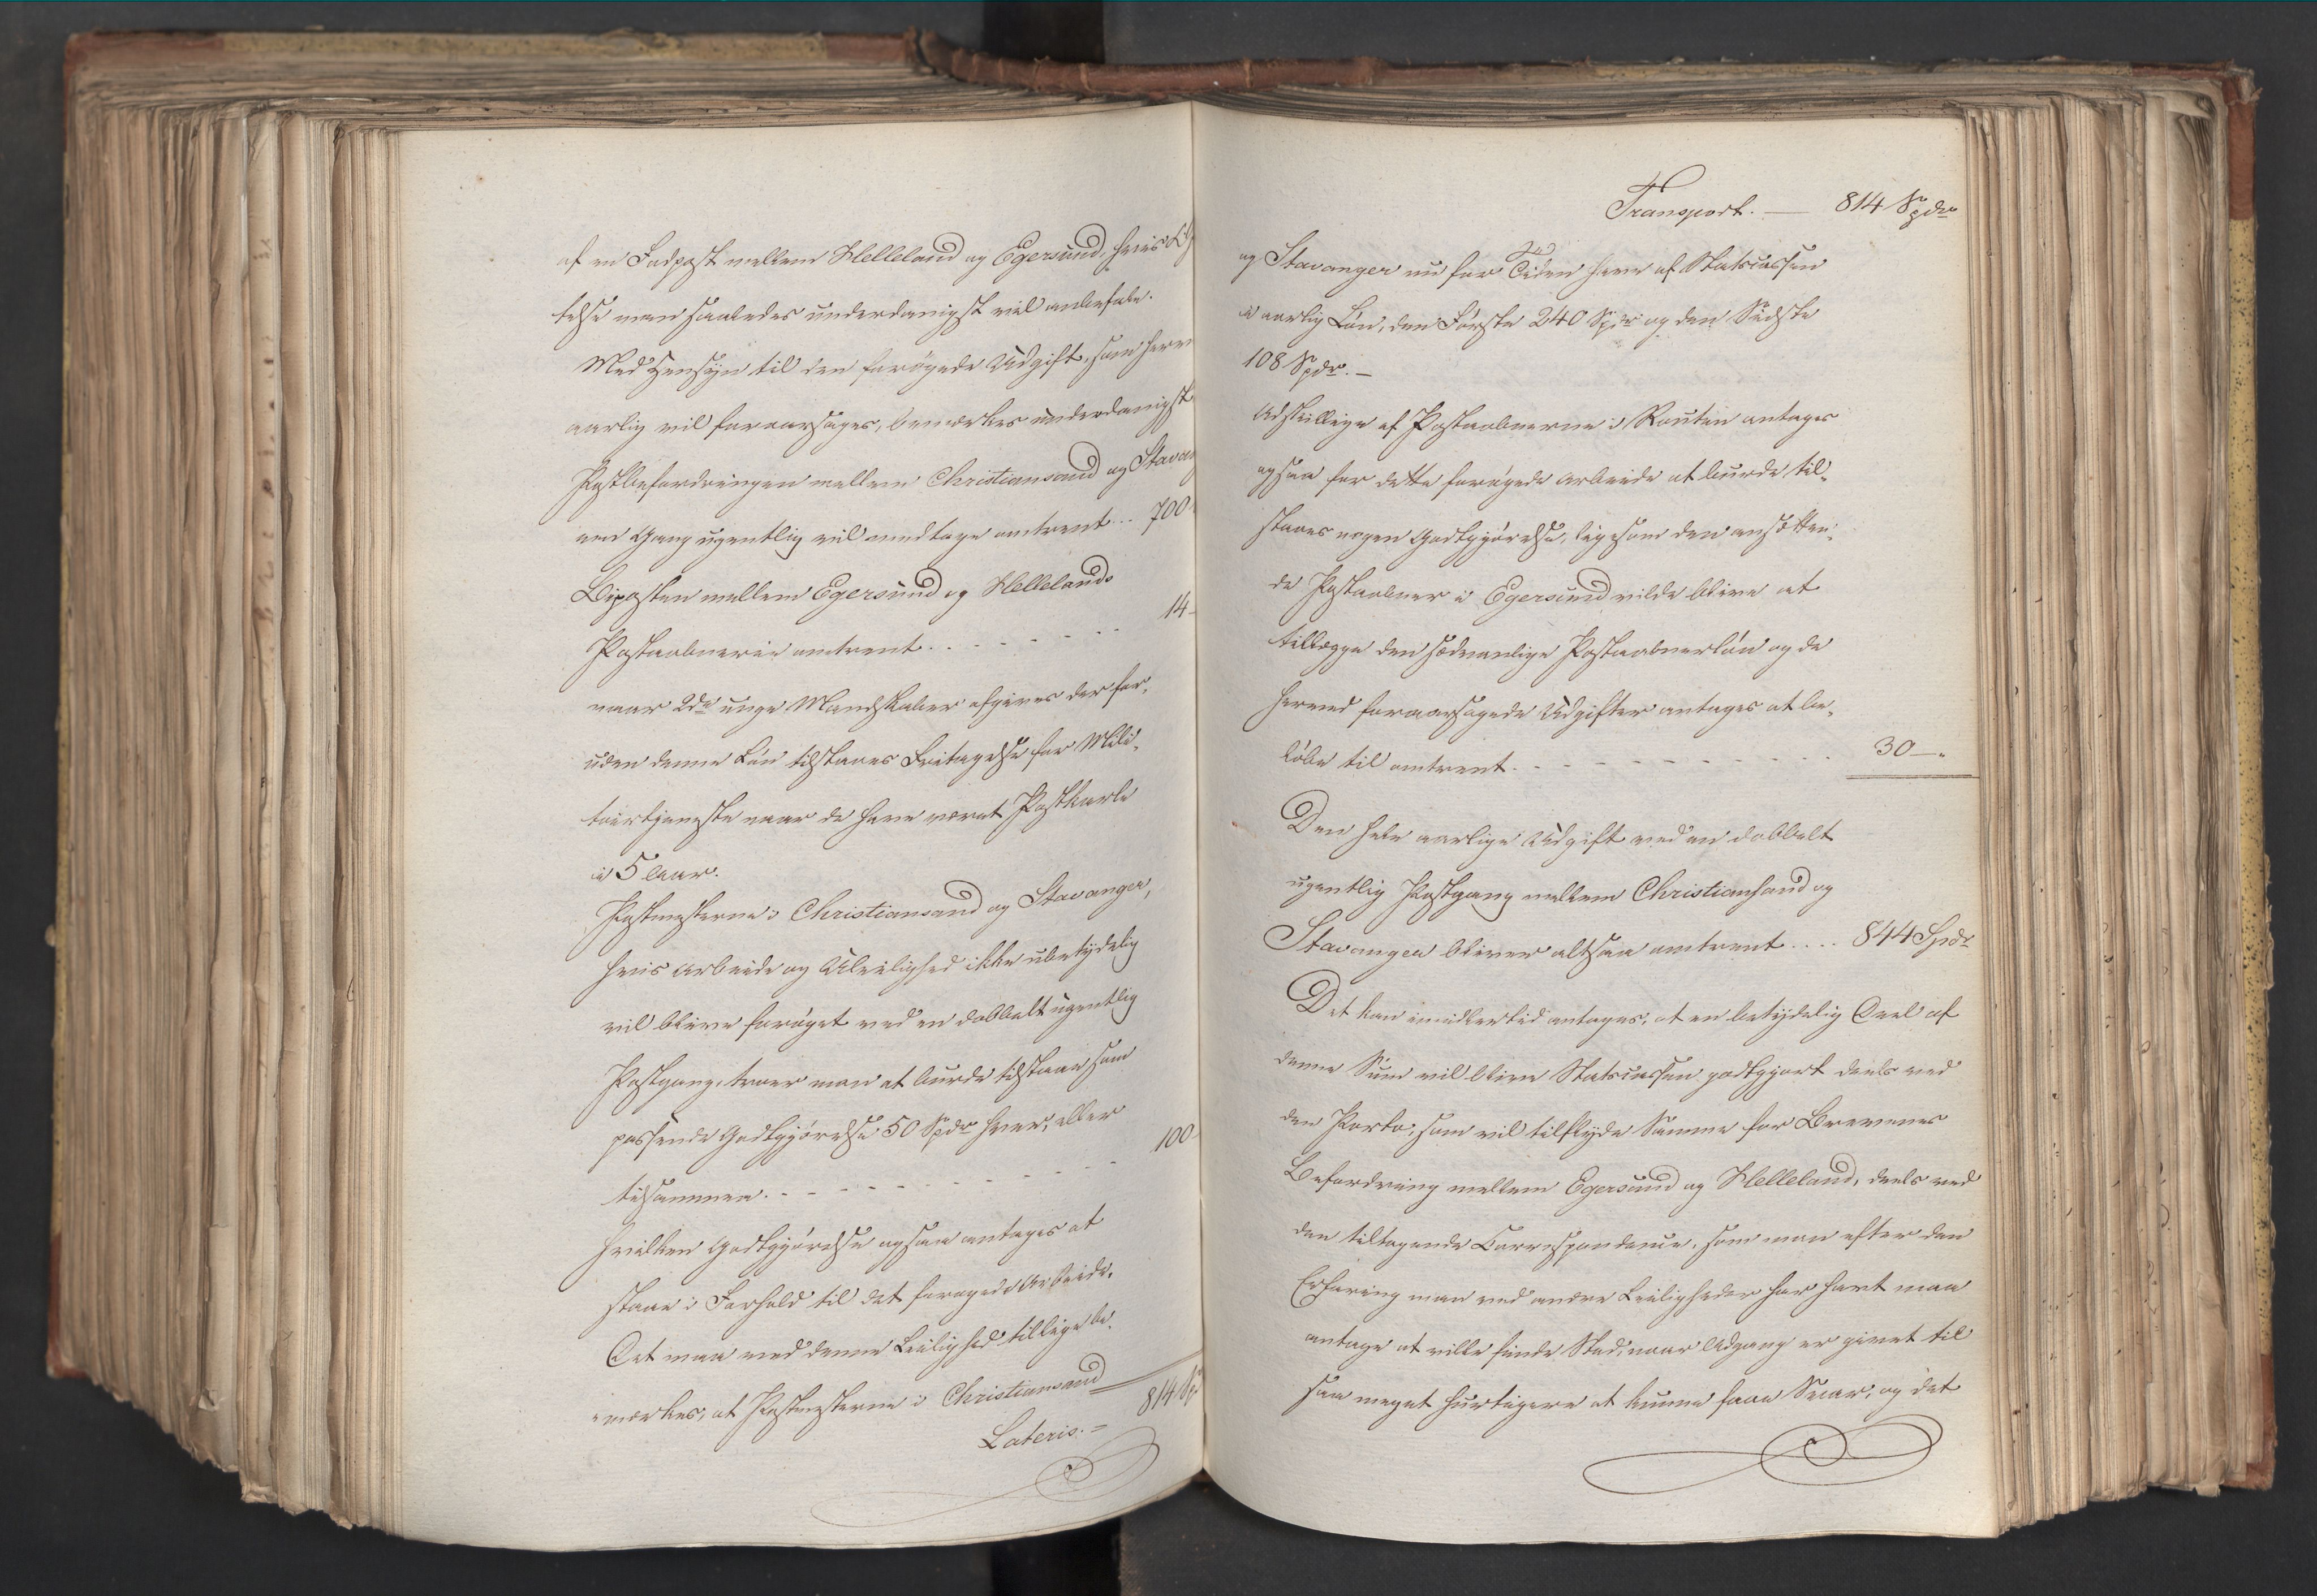 af en Fodpost mellem Helleland og Egersund, hvis
telse man saaledes underdanigst vil anbefale.
Med Hensyn til den forøgede Udgift, som herv
aarlig vil foraarsages, bemærkes underdanigst
Postbefordringen mellem Christiansand og Stavan
een Gang ugentlig vil medtage omtrent... 700
Biposten mellem Egersund og Hellelands
Postaabnerie omtrent. . - - - - - - 14-
naar 2de unge Mandskaber afgives der for,
uden denne Løn tilstaaes Fritagelse for Mili,
tairtjeneste naar de have været Postkarle
i 5 Aar.
Postmesterne i Christiansand og Stavanger,
hvis Arbeide og Uleilighed ikke ubetydelig
vil blive forøget ved en dobbelt ugentlig
Postgang, troer man at burde tilstaaes som
passende Godtgjørelse 50 Spdr hver, eller
tilsammen. - - - - - - - - - 100-
hvilken Godtgjørelse ogsaa antages at
staae i Forhold til det forøgede Arbeide.
Det maa ved denne Leilighed tillige be,
mærkes, at Postmesterne i Christiansand
Lateris. = 814 Sp
Transport. — 814 Spdr
og Stavanger nu for Tiden have af Statscassen
i aarlig Løn, den Første 240 Spdr og den Sidste
108 Spdr. —
Adskillige af Postaabnerne i Routen antages
ogsaa for dette forøgede Arbeide at burde til,
staaes nogen Godtgjørelse, ligesom den ansætten,
de Postaabner i Egersund vilde blive at
tillægge den sædvanlige Postaabnerløn og de
herved foraarsagede Udgifter antages at be,
løbe til omtrent. - - - - - - - - - 30 — "
Den hele aarlige Udgift ved en dobbelt
ugentlig Postgang mellem Christiansand og
Stavanger bliver altsaa omtrent.... 844 Spdr
Det kan imidlertid antages, at en betydelig Deel af
denne Sum vil blive Statscassen godtgjort deels ved
den Porto, som vil tilflyde Samme for Brevenes
Befordring mellem Egersund og Helleland, deels ved
den tiltagende Correspondence, som man efter den
Erfaring man ved andre Leiligheder har havt maa
antage at ville finde Sted, naar Adgang er givet til
saa meget hurtigere at kunne faae Svar, og det